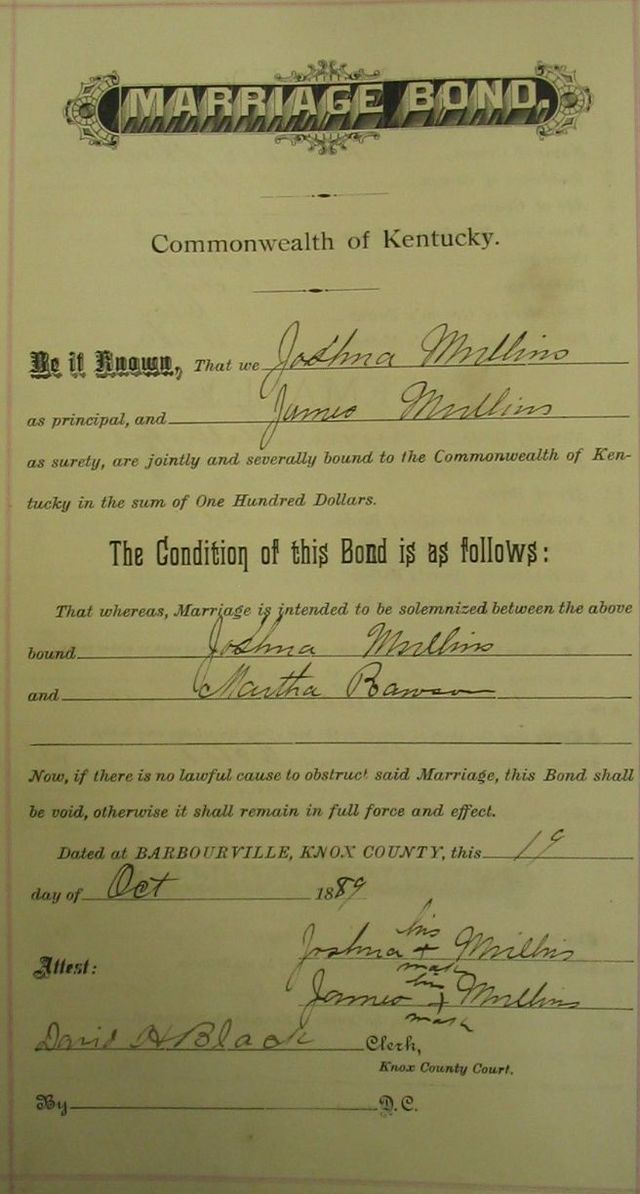 MARRIAGE BOND.
Commonwealth of Kentucky.
Be it Known, That we Joshua Mullins
as principal, and James Mullins
as surety, are jointly and severally bound to the Commonwealth of Ken-
tucky in the sum of One Hundred Dollars.
The Condition of this Bond is as follows:
That whereas, Marriage is intended to be solemnized between the above
bound Joshua Mullins
and Martha Rawson
Now, if there is no lawful cause to obstruct said Marriage, this Bond shall
be void, otherwise it shall remain in full force and effect.
Dated at BARBOURVILLE, KNOX COUNTY, this 19
day of Oct 1889
his
Joshua + Mullins
Attest: mark
his
James + Mullins
mark
David H Black Clerk,
Knox County Court.
By D.C.